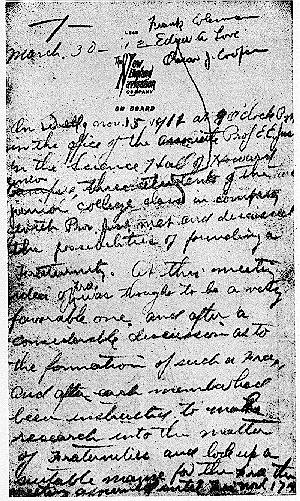 1-
Frank Coleman
March. 30-12 Edgar A Love
Oscar J. Cooper
The New England Navigation COMPANY
ON BOARD
On Nov. 15 1911 at 9 o'clock P.M.
in the office of the associate Prof E.E. Just
in the Science Hall of Howard
three students of the
junior college class in company
with Prof. Just met and discussed
the possibilities of founding a
Fraternity. At this meeting
idea of frat was thought to be a very
favorable one. and after a
considerable discussion as to
the formation of such a Frat,
and after each member had
been instructed to make
research into the matter
of Fraternities and look up a
suitable name for the Frat, the
meeting adjourned until Nov. 17